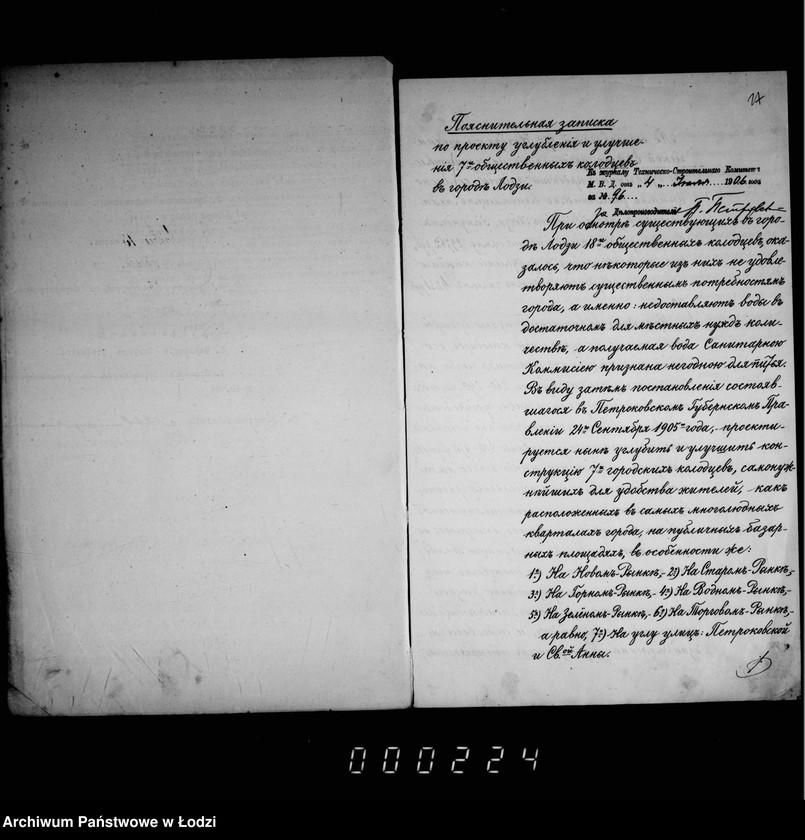 27
Пояснительная записка
по проекту углубленія и улучше-
нія 7ми общественныхъ колодцевъ
въ городѣ Лодзи.
Къ журналу Техническо-Строительнаго Комитета
М. В. Д. отъ „4„ Іюля 1906 года
за № 96
За Дѣлопроизводителя
При осмотрѣ существующихъ въ горо-
дѣ Лодзи 18ти общественныхъ колодцевъ, ока-
залось, что нѣкоторые изъ нихъ не удовле-
творяютъ существеннымъ потребностямъ
города, а именно: недоставляютъ воды въ
достаточномъ для мѣстныхъ нуждъ коли-
чествѣ, а получаемая вода Санитарною
Коммисіею признана негодною для питья.
Въ виду затѣмъ постановленія состояв-
шагося въ Петроковскомъ Губернскомъ Пра-
вленіи 24го Сентября 1905го года, проекти-
руется нынѣ углубить и улучшить кон-
струкцію 7ми городскихъ колодцевъ, самонуж-
нѣйшихъ для удобства жителей, какъ
расположенныхъ въ самыхъ многолюдныхъ
кварталахъ города, на публичныхъ базар-
ныхъ площадяхъ, въ особенности же:
1о) На Новомъ-Рынкѣ,- 2о) На Старомъ-Рынкѣ,-
3о) На Горномъ-Рынкѣ,- 4о) На Водномъ-Рынкѣ,-
5о) На Зелёномъ-Рынкѣ,- 6о) На Торговомъ-Рынкѣ,-
а равно, 7о) На углу улицъ: Петроковской
и Св.ой Анны.
000224
Archiwum Państwowe w Łodzi